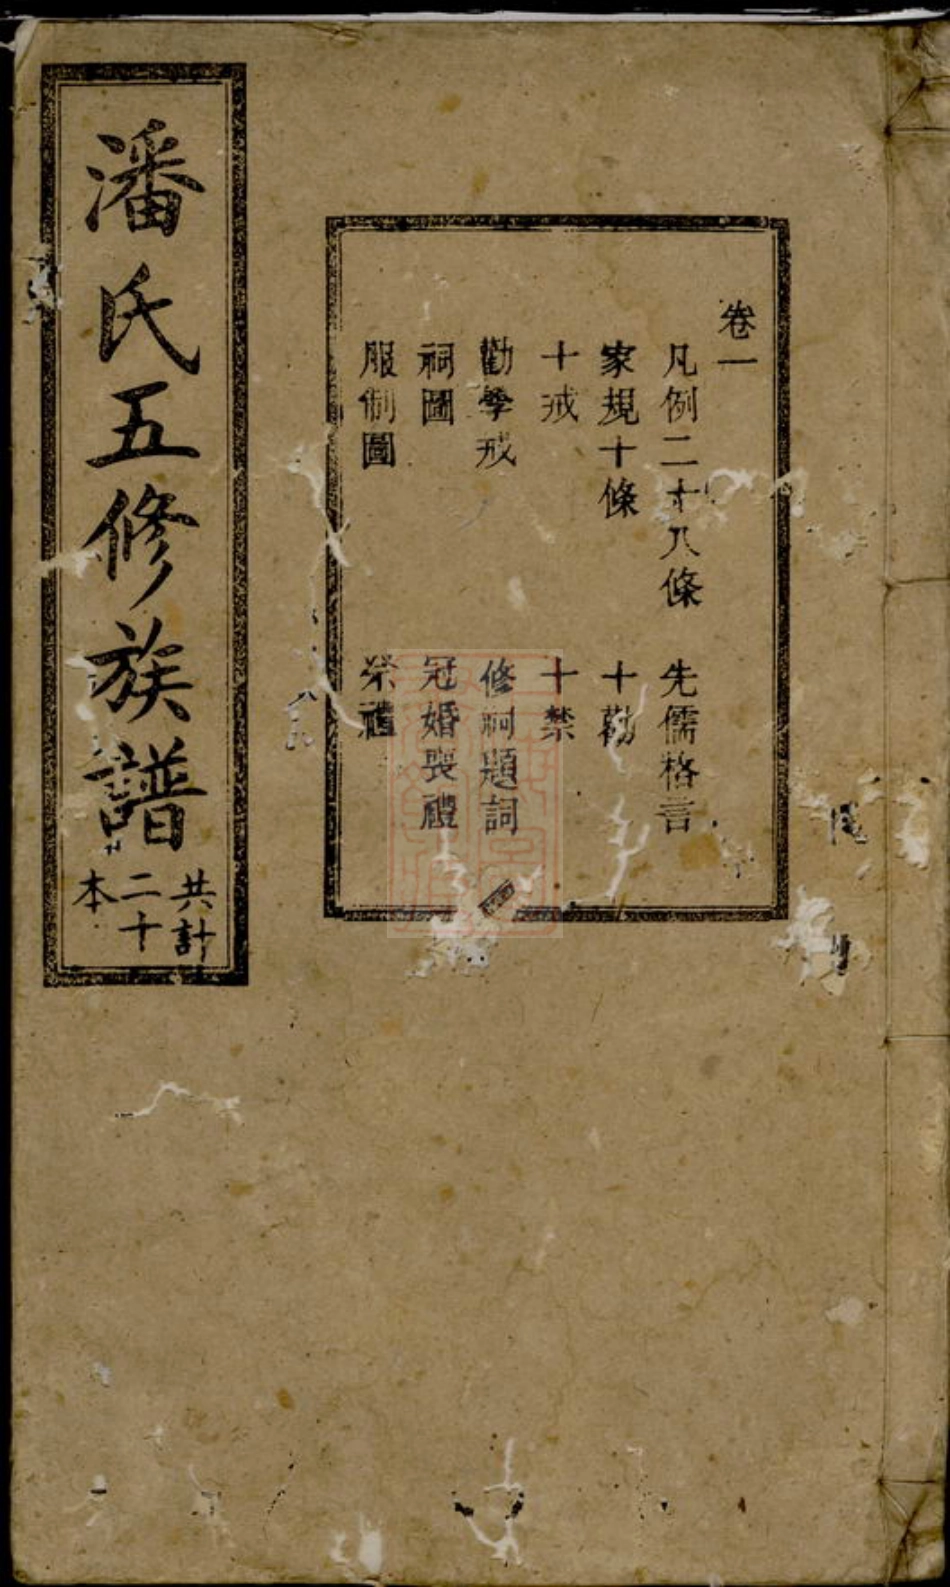 卷一
凡例二十八條 先儒格言
家規十條 十勸
十戒 十禁
勸學戒 修祠題詞
祠圖 冠婚喪禮
服制圖 祭禮
潘氏五修族譜
共計
二十
本